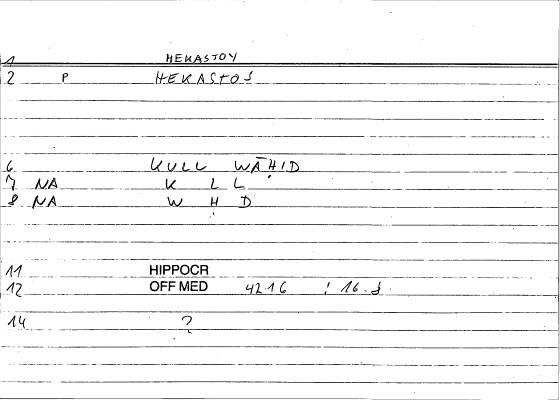 1 HEKASTOY
2 P HEKASTOS
6 KULL WĀḤID
7 NA K L L
8 NA W Ḥ D
11 HIPPOCR
12 OFF MED 42.16 : 16.8
14 ?